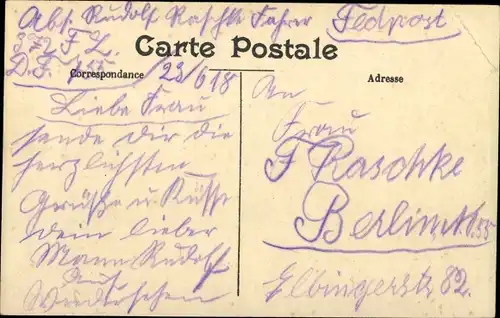 Abs. Rudolf Raschke Fahrer Fedpost
372 F. L.
D. F. 
Carte Postale
Correspondance
23/6 18
Adresse
Liebe Frau
sende Dir die
herzlichsten
Grüße u. Küsse
Dein lieber
Mann Rudolf
Auf
Wiedersehen
An
Frau
F Raschke
Berlin N. O. 55
Elbingerstr 82.